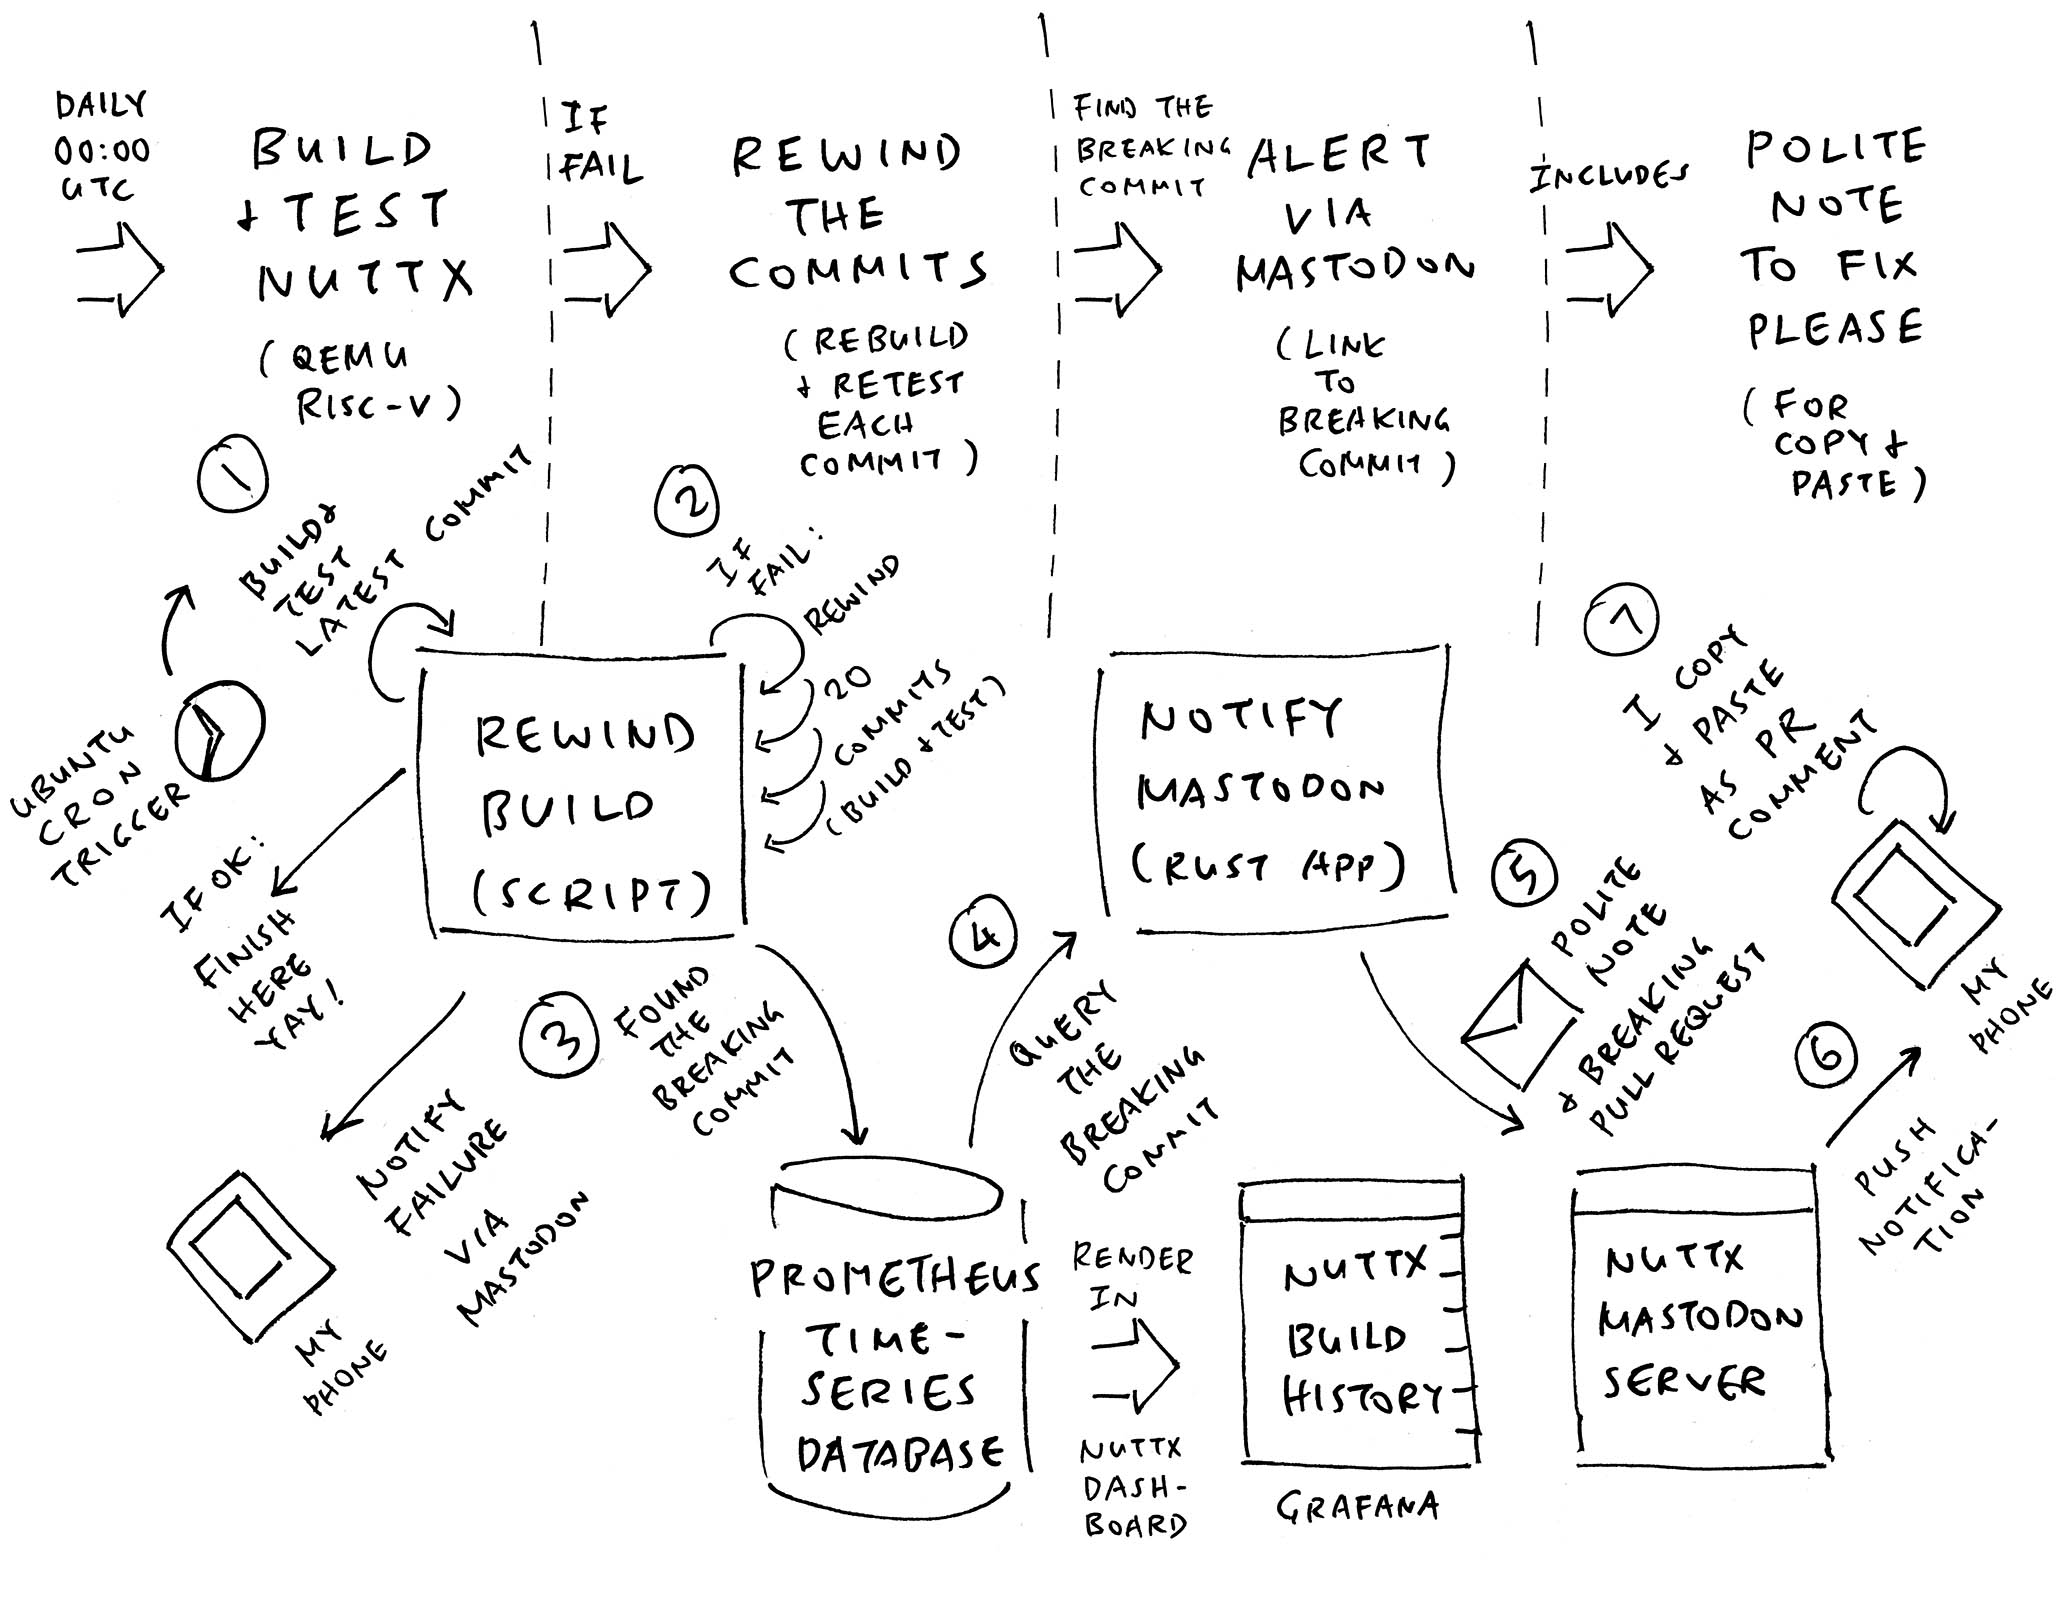 DAILY
00:00
UTC
BUILD
+ TEST
NUTTX
(QEMU
RISC-V)
IF
FAIL
REWIND
THE
COMMITS
(REBUILD
+ RETEST
EACH
COMMIT)
FIND THE
BREAKING
COMMIT
ALERT
VIA
MASTODON
(LINK
TO
BREAKING
COMMIT)
INCLUDES
POLITE
NOTE
TO FIX
PLEASE
(FOR
COPY +
PASTE)
1
BUILD +
TEST
LATEST COMMIT
UBUNTU
CRON
TRIGGER
IF OK:
FINISH
HERE
YAY!
REWIND
BUILD
(SCRIPT)
2
IF
FAIL:
REWIND
20
COMMITS
(BUILD + TEST)
NOTIFY
FAILURE
VIA
MASTODON
MY
PHONE
3
FOUND
THE
BREAKING
COMMIT
PROMETHEUS
TIME-
SERIES
DATABASE
4
QUERY
THE
BREAKING
COMMIT
NOTIFY
MASTODON
(RUST APP)
RENDER
IN
NUTTX
DASH-
BOARD
NUTTX
BUILD
HISTORY
GRAFANA
5
POLITE
NOTE
+ BREAKING
PULL REQUEST
NUTTX
MASTODON
SERVER
6
PUSH
NOTIFICA-
TION
7
I COPY
+ PASTE
AS PR
COMMENT
MY
PHONE